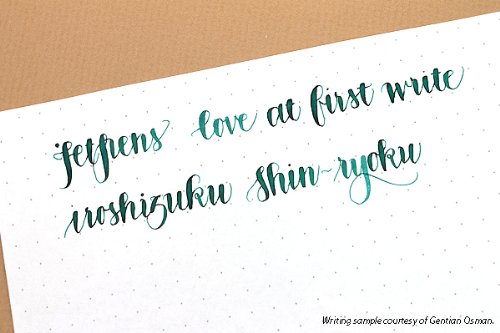 jetpens love at first write
iroshizuku shin-ryoku
Writing sample courtesy of Gentian Osman.